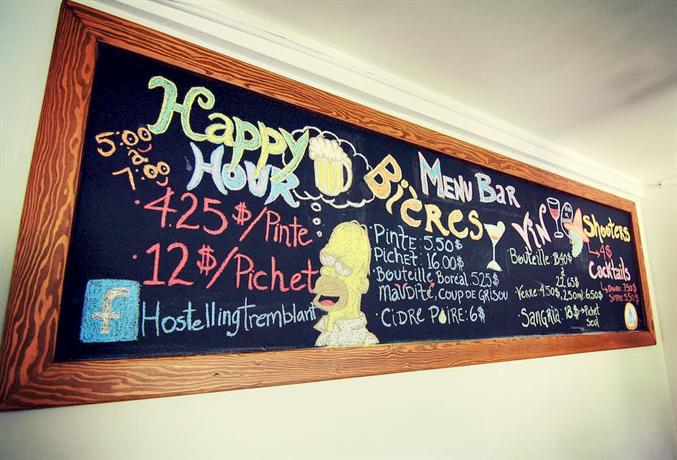 Happy
Hour
5:00
à
7:00
4.25$/Pinte
12$/Pichet
f
Hostellingtremblant
Menu Bar
Bières
Pinte: 5.50$
Pichet: 16.00$
Bouteille Boréal: 5.25$
Maudite, Coup de Grisou
Cidre Poire: 6$
Vin
Bouteille
à
22.65$
Verre: 4.50$, 250ml 6.50$
Sangria: 18$ Pichet
Seul
Shooters
4$
Cocktails